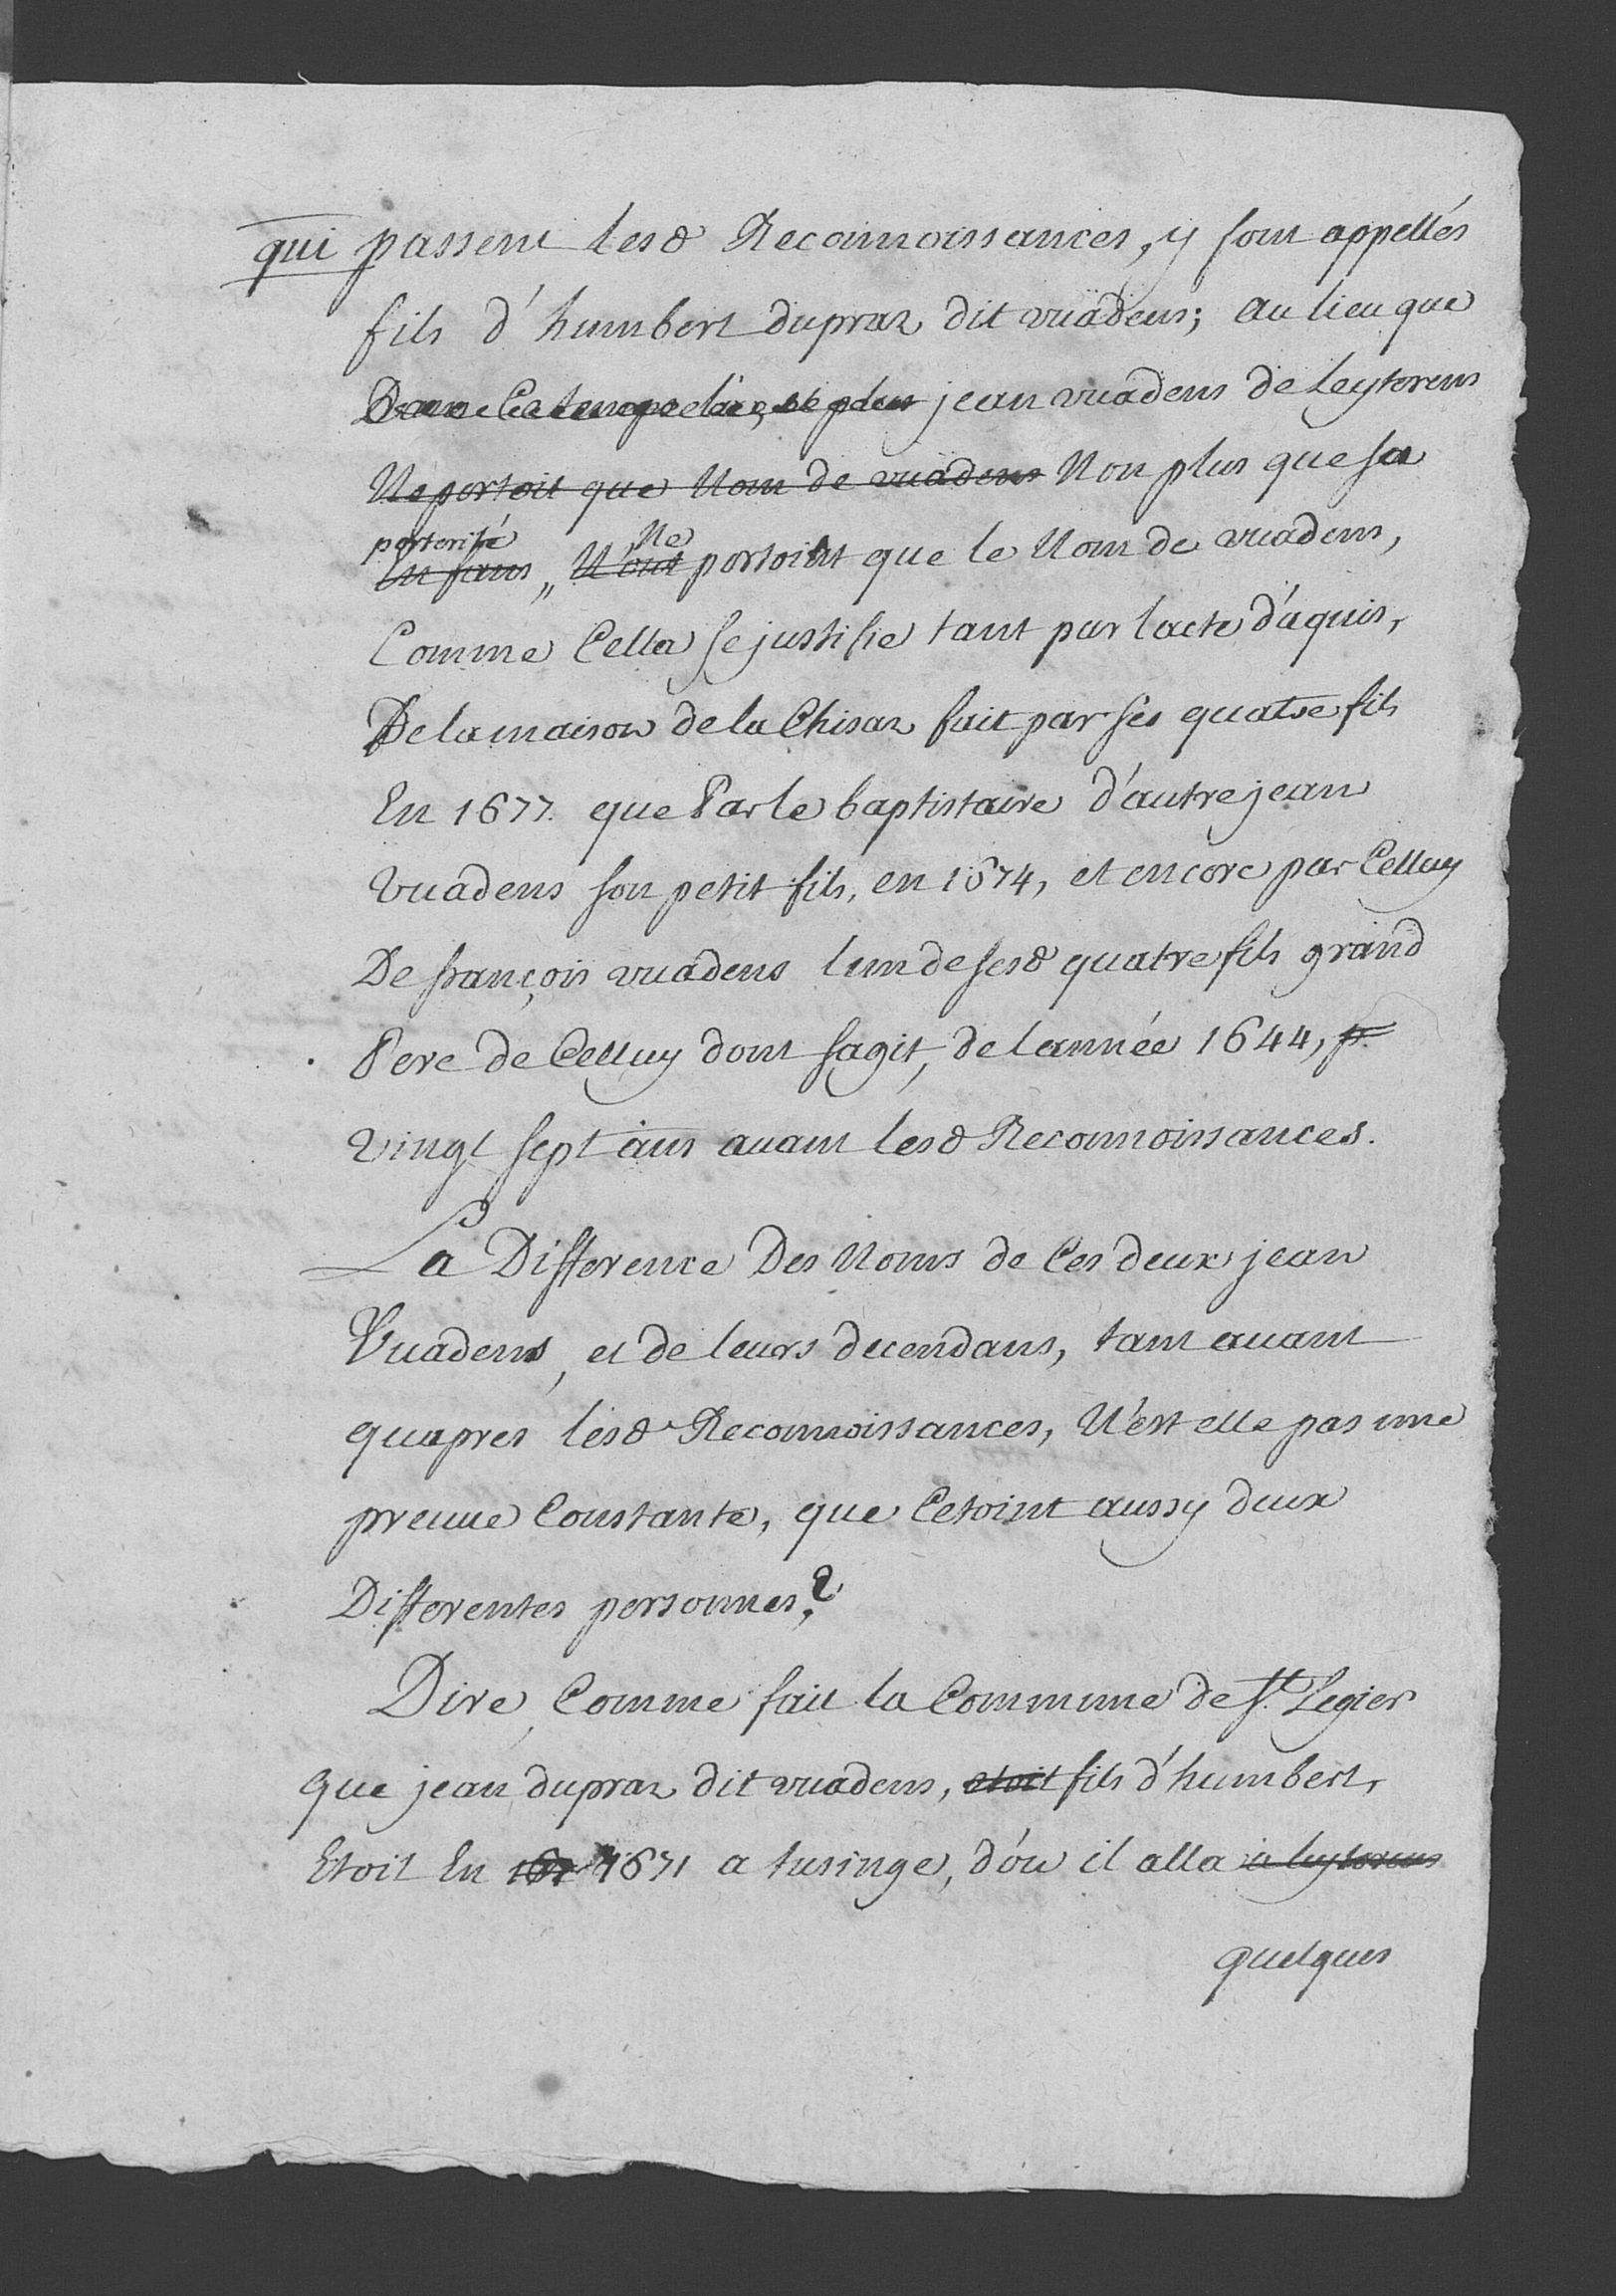 qui passent lesd Reconnoissances, y sont appellés
fils d'humbert dupraz dit vuadens; au lieu que
Dans Ce temps la, et plus jean vuadens de Leytorens
Ne portoit que Nom de vuadens Non plus que sa
posterité Ne
Enfans „ N'ont portoint que le Nom de vuadens,
Comme Cella se justifie tant par lacte d'aquis,
De la maison de la Chisaz fait par ses quatre fils
En 1677. que Par le baptistaire d'autre jean
vuadens son petit fils, en 1674, et encore par Celluy
De françois vuadens lun de sesd quatre fils grand
Pere de Celluy dont sagit, de lannée 1644,
vingt sept ans avant lesd Reconnoissances.
La Difference Des Noms de Ces deux jean
Vuadens, et de leurs decendans, tant avant
quapres lesd Reconnoissances, N'est elle pas une
preuve Constante, que Cetoint aussy deux
Differentes personnes?
Dire, Comme fait la Commune de St. Legier
que jean dupraz dit vuadens, etoit fils d'humbert,
Etoit En 167 1671 a tusinge, d'où il alla a leytorens
quelques